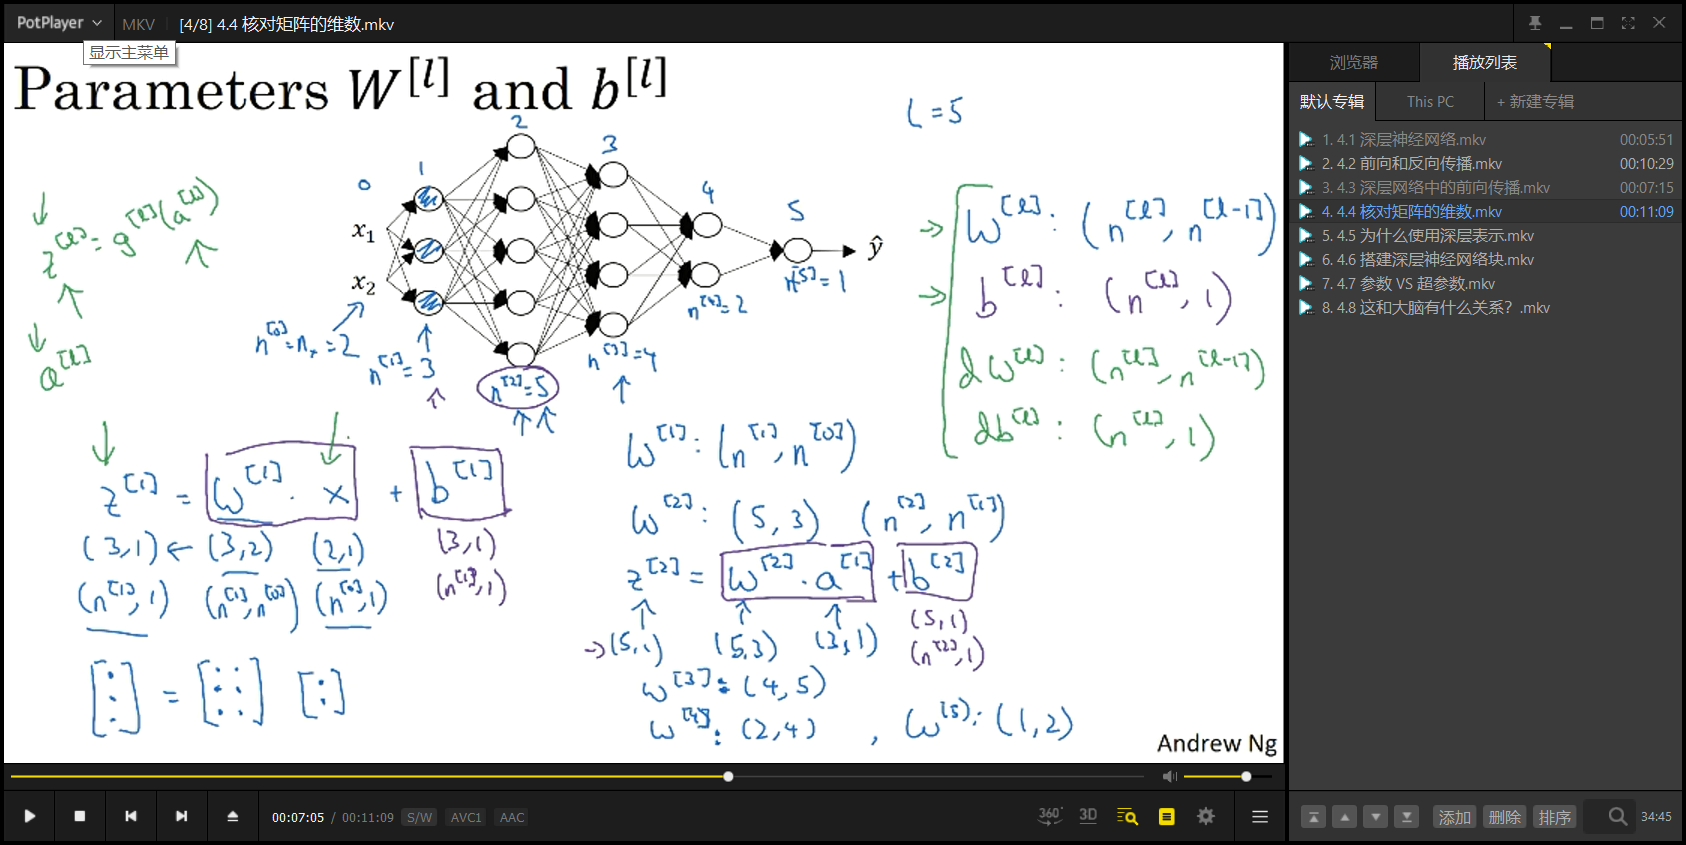 PotPlayer MKV [4/8] 4.4 核对矩阵的维数.mkv
显示主菜单
Parameters W^[l] and b^[l]
L = 5
0 1 2 3 4 5
x₁
x₂
ŷ
n^[0] = n_x = 2
n^[1] = 3
n^[2] = 5
n^[3] = 4
n^[4] = 2
n^[5] = 1
z^[l] = g^[l](a^[l])
a^[l]
W^[l] : (n^[l], n^[l-1])
b^[l] : (n^[l], 1)
dW^[l] : (n^[l], n^[l-1])
db^[l] : (n^[l], 1)
z^[1] = W^[1] · x + b^[1]
(3,1) ← (3,2) (2,1) (3,1)
(n^[1], 1) (n^[1], n^[0]) (n^[0], 1) (n^[1], 1)
[⋮] = [: : :] [:]
W^[1] : (n^[1], n^[0])
W^[2] : (5,3) (n^[2], n^[1])
z^[2] = W^[2] · a^[1] + b^[2]
→ (5,1) (5,3) (3,1) (5,1)
(n^[2], 1)
W^[3] : (4,5)
W^[4] : (2,4) , W^[5] : (1,2)
Andrew Ng
00:07:05 / 00:11:09 S/W AVC1 AAC
360° 3D
浏览器 播放列表
默认专辑 This PC + 新建专辑
1. 4.1 深层神经网络.mkv 00:05:51
2. 4.2 前向和反向传播.mkv 00:10:29
3. 4.3 深层网络中的前向传播.mkv 00:07:15
4. 4.4 核对矩阵的维数.mkv 00:11:09
5. 4.5 为什么使用深层表示.mkv
6. 4.6 搭建深层神经网络块.mkv
7. 4.7 参数 VS 超参数.mkv
8. 4.8 这和大脑有什么关系？.mkv
添加 删除 排序 34:45